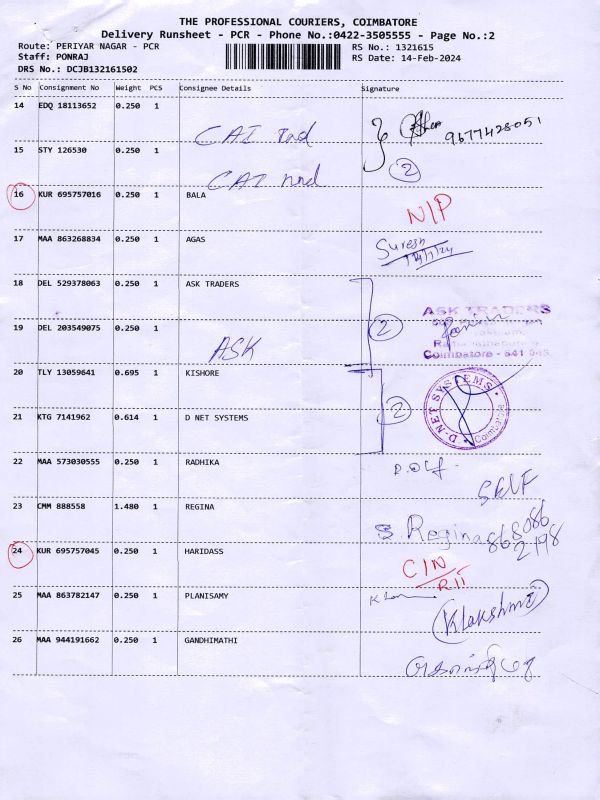 THE PROFESSIONAL COURIERS, COIMBATORE
Delivery Runsheet - PCR - Phone No.:0422-3505555 - Page No.:2
Route: PERIYAR NAGAR - PCR
RS No.: 1321615
Staff: PONRAJ
RS Date: 14-Feb-2024
DRS No.: DCJB132161502
S No Consignment No Weight PCS Consignee Details Signature
14 EDQ 18113652 0.250 1
9677428051
15 STY 126530 0.250 1
2
16 KUR 695757016 0.250 1 BALA
N/P
17 MAA 863268834 0.250 1 AGAS
Suresh
18 DEL 529378063 0.250 1 ASK TRADERS
ASK TRADERS
19 DEL 203549075 0.250 1
ASK
2
Coimbatore - 641 045
20 TLY 13059641 0.695 1 KISHORE
21 KTG 7141962 0.614 1 D NET SYSTEMS
2
D-NET SYSTEMS
Coimbatore
22 MAA 573030555 0.250 1 RADHIKA
SELF
23 CMM 888558 1.480 1 REGINA
S. Regina 868086
2198
24 KUR 695757045 0.250 1 HARIDASS
C/N
RII
25 MAA 863782147 0.250 1 PLANISAMY
Klakshmi
26 MAA 944191662 0.250 1 GANDHIMATHI